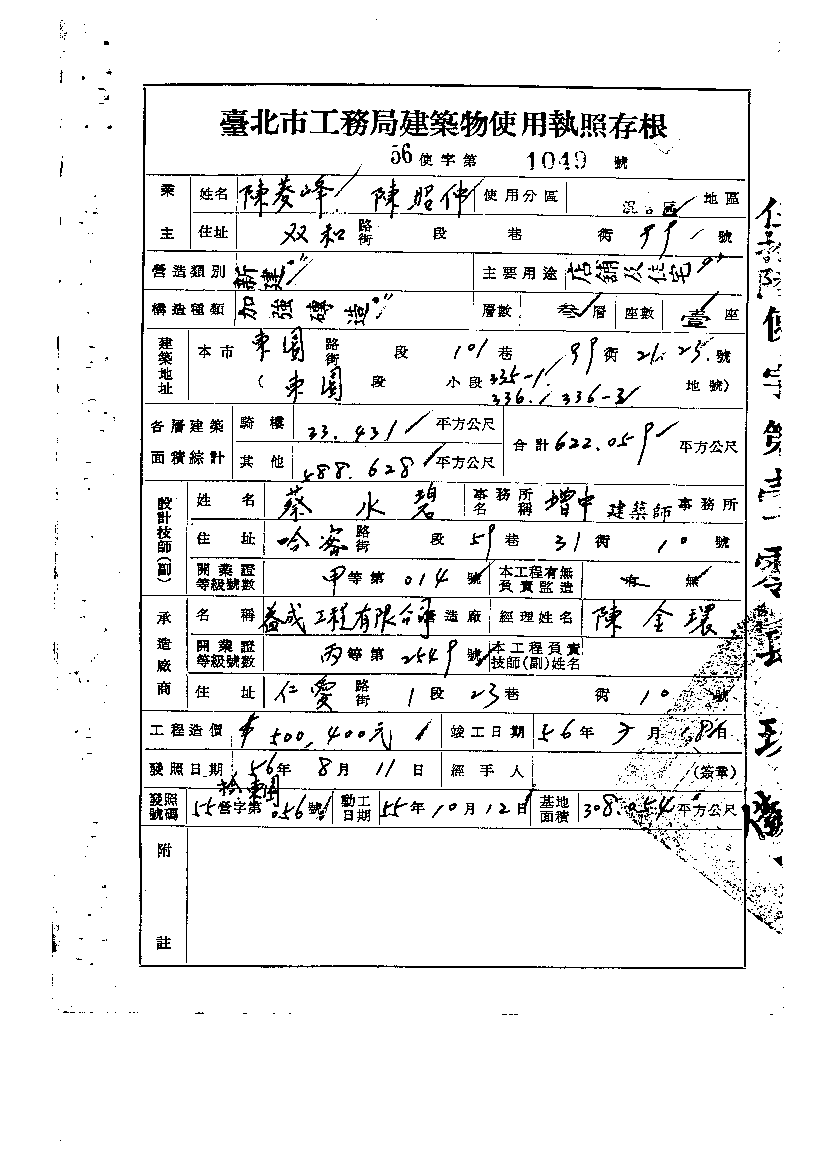 臺北市工務局建築物使用執照存根
56使字第 1049 號
業主 姓名 陳菱峰 陳昭仲 使用分區 混合區 地區
住址 双和 路街 段 巷 衖 99 號
營造類別 新建 主要用途 店舖及住宅
構造種類 加強磚造 層數 層 座數 壹 座
建築地址 本市 東園 路街 段 101 巷 99 衖 21.25. 號
(東園 段 小段 335-1 336. 336-3 地號)
各層建築面積綜計 騎樓 33.431 平方公尺 合計 622.059 平方公尺
其他 588.628 平方公尺
設計技師(副) 姓名 蔡水碧 事務所名稱 增中建築師事務所
住址 哈密 路街 段 59 巷 31 衖 10 號
開業證等級號數 甲等第 014 號 本工程有無負責監造 有 無
承造廠商 名稱 益成工程有限公司 營造廠 經理姓名 陳金環
開業證等級號數 丙等第 2549 號 本工程負責技師(副)姓名
住址 仁愛 路街 1 段 23 巷 衖 10 號
工程造價 500,400元 竣工日期 56年 月 18日
發照日期 56年 8月 11日 經手人 (簽章)
發照號碼 55營字第 056 號 動工日期 55年10月12日 基地面積 308.054 平方公尺
附註